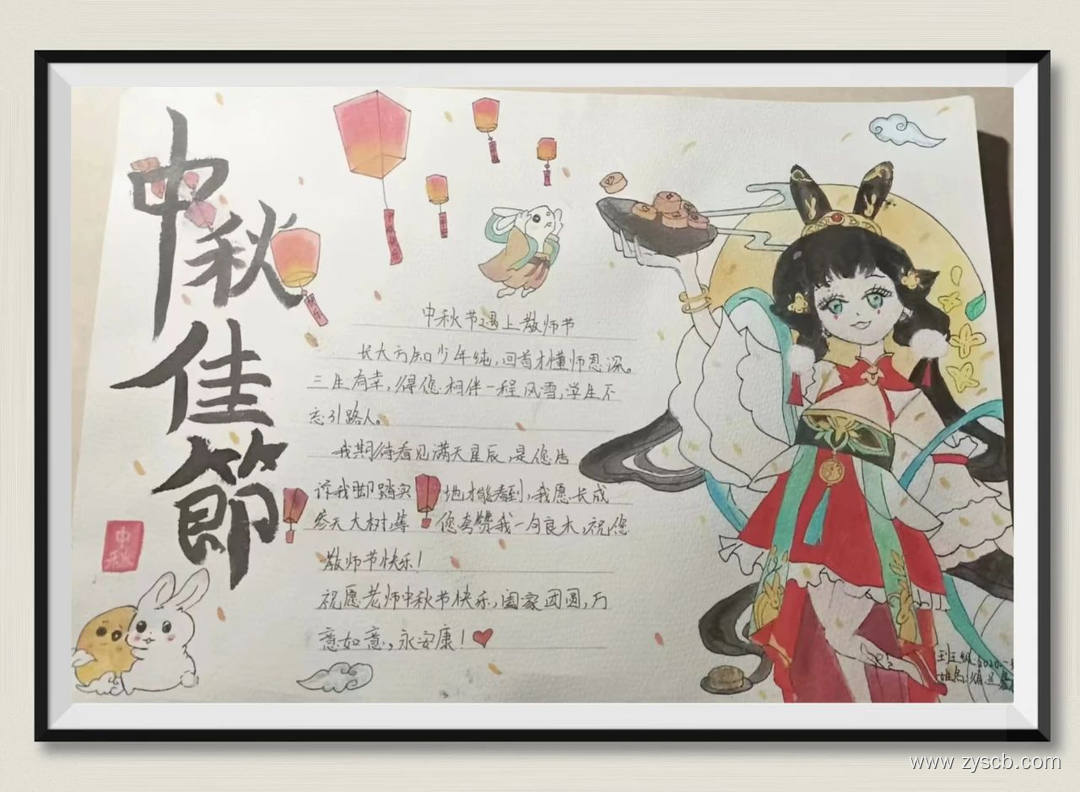 中秋佳節
中秋
中秋节遇上教师节
长大方知少年纯,回首才懂师恩深。
三生有幸,得您相伴一程风雪,学生不
忘引路人。
我期待看见满天星辰,是您告
诉我脚踏实地才能看到,我愿长成
参天大树,等您夸赞我一句良木,祝您
教师节快乐!
祝愿老师中秋节快乐,阖家团圆,万
意如意,永安康!
班级:2020
姓名:
www.zyscb.com